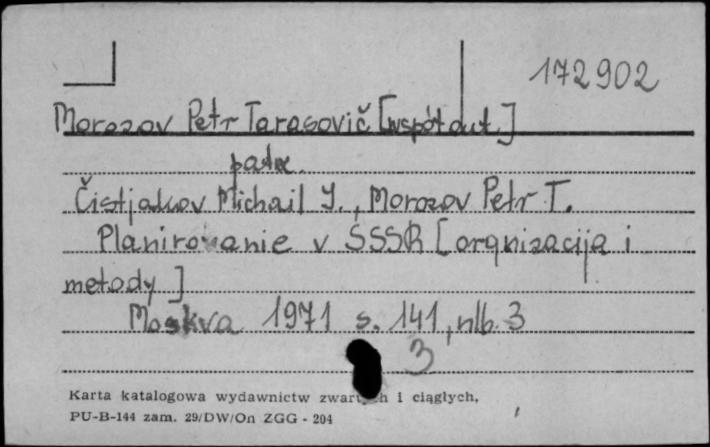 172902
Morozov Petr Tarasovič [współaut.]
patrz.
Čistjakov Michail I., Morozov Petr T.
Planirovanie v SSSR [orqnizacija i
metody]
Moskva 1971 s. 141, nlb. 3
3
Karta katalogowa wydawnictw zwartych i ciągłych,
PU-B-144 zam. 29/DW/On ZGG - 204